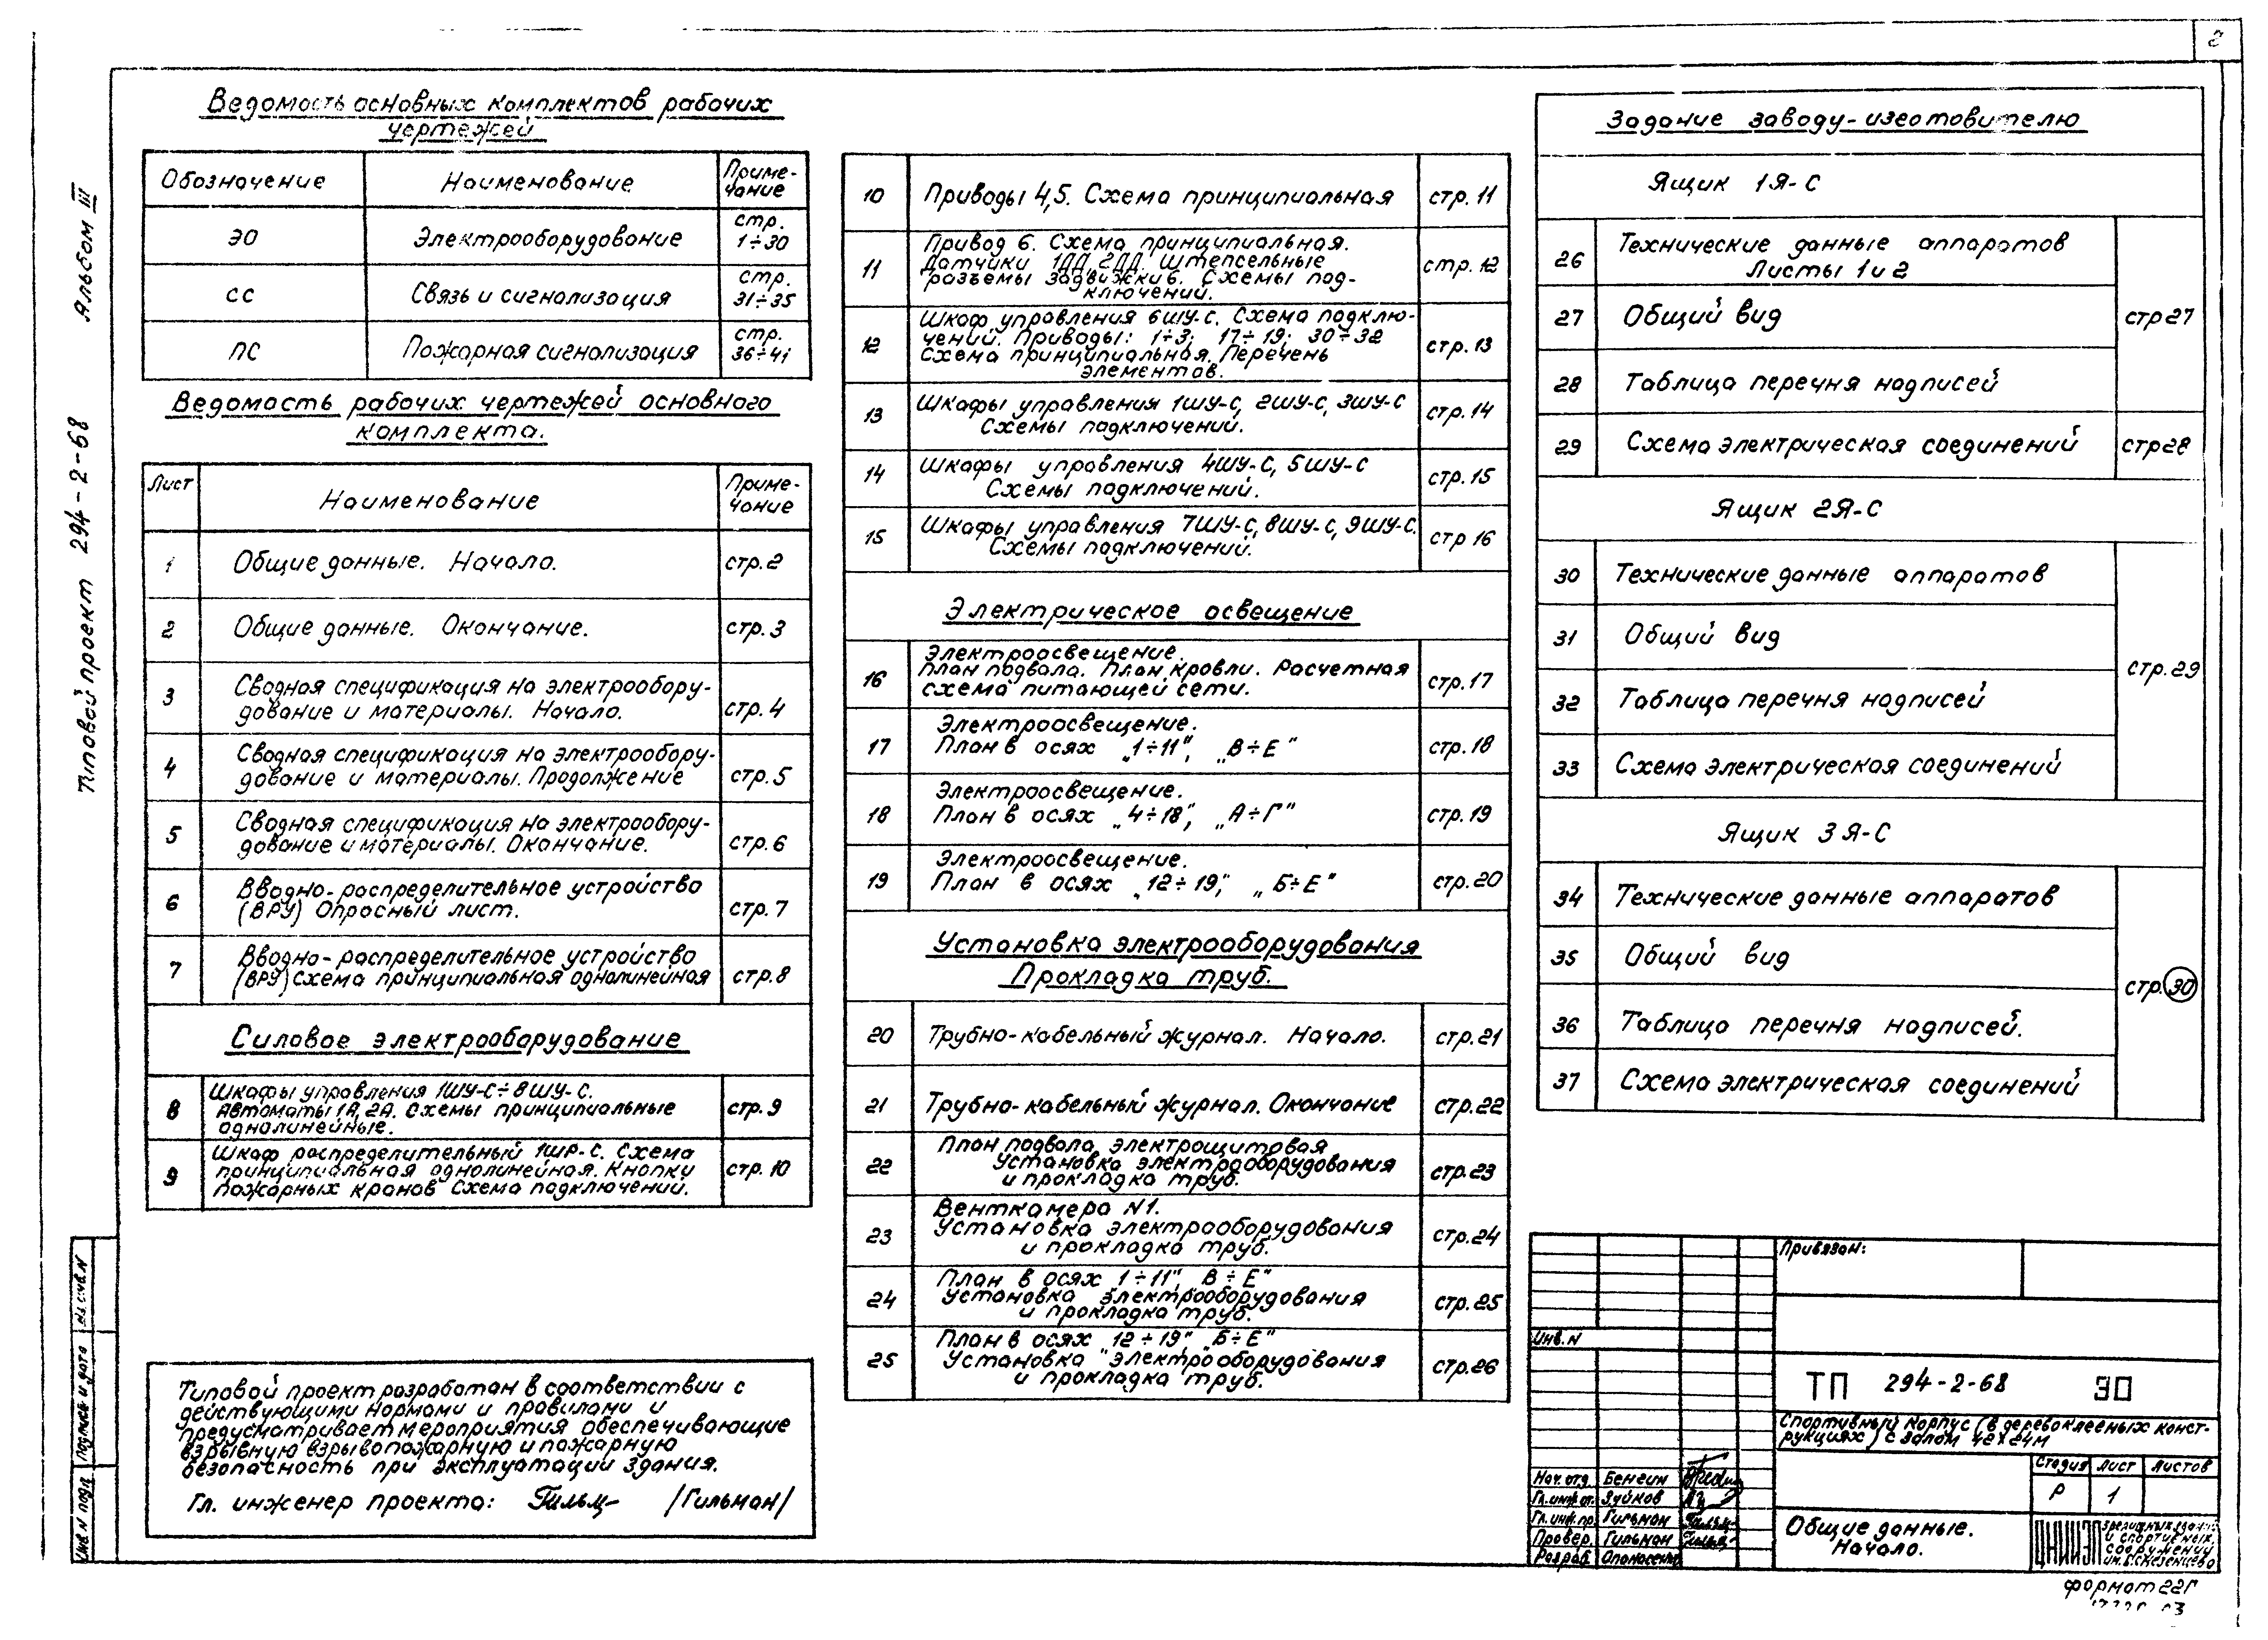 2
Альбом III
Типовой проект 294-2-68
Ведомость основных комплектов рабочих
чертежей
Обозначение
Наименование
Приме-
чание
ЭО
Электрооборудование
стр.
1÷30
СС
Связь и сигнализация
стр.
31÷35
ПС
Пожарная сигнализация
стр.
36÷41
Ведомость рабочих чертежей основного
комплекта.
Лист
Наименование
Приме-
чание
1
Общие данные. Начало.
стр.2
2
Общие данные. Окончание.
стр.3
3
Сводная спецификация на электрообору-
дование и материалы. Начало.
стр.4
4
Сводная спецификация на электрообору-
дование и материалы. Продолжение
стр.5
5
Сводная спецификация на электрообору-
дование и материалы. Окончание.
стр.6
6
Вводно-распределительное устройство
(ВРУ) Опросный лист.
стр.7
7
Вводно-распределительное устройство
(ВРУ) Схема принципиальная однолинейная
стр.8
Силовое электрооборудование
8
Шкафы управления 1ШУ-С÷8ШУ-С.
Автоматы 1А, 2А. Схемы принципиальные
однолинейные.
стр.9
9
Шкаф распределительный 1ШР-С. Схема
принципиальная однолинейная. Кнопки
пожарных кранов Схема подключений.
стр.10
Типовой проект разработан в соответствии с
действующими нормами и правилами и
предусматривает мероприятия обеспечивающие
взрывную взрывопожарную и пожарную
безопасность при эксплуатации здания.
Гл. инженер проекта: /Гильман/
10
Приводы 4,5. Схема принципиальная
стр.11
11
Привод 6. Схема принципиальная.
Датчики 1ДД, 2ДД, штепсельные
разъемы задвижки 6. Схемы под-
ключений.
стр.12
12
Шкаф управления 6ШУ-С. Схема подклю-
чений. Приводы: 1÷3; 17÷19; 30÷32
Схема принципиальная. Перечень
элементов.
стр.13
13
Шкафы управления 1ШУ-С, 2ШУ-С, 3ШУ-С
Схемы подключений.
стр.14
14
Шкафы управления 4ШУ-С, 5ШУ-С
Схемы подключений.
стр.15
15
Шкафы управления 7ШУ-С, 8ШУ-С, 9ШУ-С.
Схемы подключений.
стр 16
Электрическое освещение
16
Электроосвещение.
План подвала. План кровли. Расчетная
схема питающей сети.
стр.17
17
Электроосвещение.
План в осях „1÷11", „В÷Е"
стр.18
18
Электроосвещение.
План в осях „4÷18", „А÷Г"
стр.19
19
Электроосвещение.
План в осях „12÷19", „Б÷Е"
стр.20
Установка электрооборудования
Прокладка труб.
20
Трубно-кабельный журнал. Начало.
стр.21
21
Трубно-кабельный журнал. Окончание
стр.22
22
План подвала, электрощитовая
Установка электрооборудования
и прокладка труб.
стр.23
23
Венткамера N1.
Установка электрооборудования
и прокладка труб.
стр.24
24
План в осях 1÷11", В÷Е"
Установка электрооборудования
и прокладка труб.
стр.25
25
План в осях 12÷19" „Б÷Е"
Установка электрооборудования
и прокладка труб.
стр.26
Задание заводу-изготовителю
Ящик 1Я-С
26
Технические данные аппаратов
Листы 1 и 2
27
Общий вид
стр27
28
Таблица перечня надписей
29
Схема электрическая соединений
стр28
Ящик 2Я-С
30
Технические данные аппаратов
31
Общий вид
стр.29
32
Таблица перечня надписей
33
Схема электрическая соединений
Ящик 3Я-С
34
Технические данные аппаратов
35
Общий вид
стр.30
36
Таблица перечня надписей.
37
Схема электрическая соединений
Привязан:
Инв.N
ТП 294-2-68 ЭО
Спортивный корпус (в деревоклееных конст-
рукциях) с залом 42х24м
Стадия Лист Листов
Р 1
Нач.отд. Бенгин
Гл.инж.от. Зуйков
Гл.инж.пр. Гильман
Провер. Гильман
Разраб.
Общие данные.
Начало.
ЦНИИЭП
зрелищных зданий
и спортивных
сооружений
им. Б.С.Мезенцева
формат 22Г
Взам.инв.N
Подпись и дата
Инв.N подл.